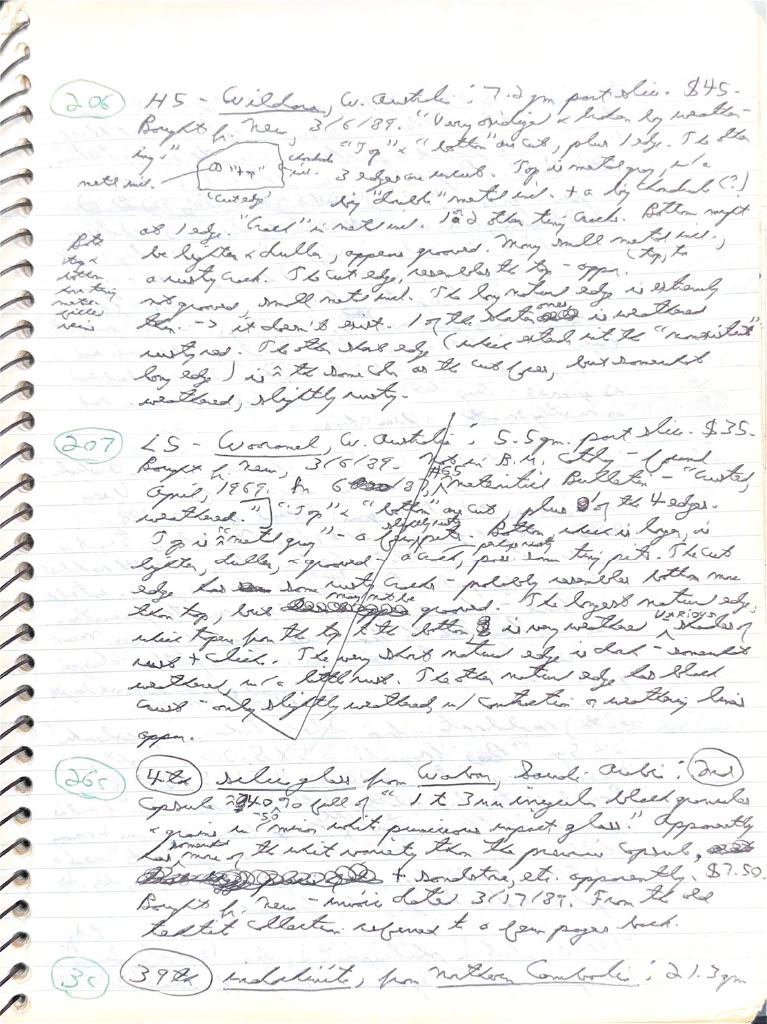 206 H5 - Wildara, W. Australia: 7.2 gm part slice. $45.
Bought fr. New, 3/6/89. "Very oxidized & broken by weather-
ing." "Top" & "bottom" are cut, plus 1 edge. The other
metal incl. "top" chondrule incl. 3 edges are uncut. Top is metal gray, w/ a
(cut edge) big "double" metal incl. + a big chondrule (?)
at 1 edge. "Crack" in metal incl. 1 or 2 other tiny cracks. Bottom might
be lighter & duller, appears grooved. Many small metal incl.,
Both top & bottom have tiny metal filled veins
a rusty crack. The cut edge, resembles the top - appar. (top, to
not grooved, small metal incl. The long natural edge is extremely
thin. -> it doesn't exist. 1 of the shorter ones is weathered
rusty red. The other short edge (which extends into the "nonexistent"
long edge) is the same color as the cut faces, but somewhat
weathered, slightly rusty.
207 L5 - Wooramel, W. Australia: 5.5 gm. part slice. $35.
Bought fr. New, 3/6/89. Not in B.M. Ctlg - found
April, 1969. In 6/87, #65 Meteoritical Bulletin - "Crusted,
weathered." "Top" & "bottom" are cut, plus 1 of the 4 edges.
Top is "metal gray" - a few slightly rusty pits. Bottom which is larger, is
lighter, duller, & grooved - a crack, perhaps rusty, poss. some tiny pits. The cut
edge has some rusty cracks - probably resembles bottom more
than top, but may not be grooved. The longest natural edge,
which tapers from the top to the bottom, is very weathered various shades of
rust + black. The very short natural edge is dark - somewhat
weathered, w/ a little rust. The other natural edge has black
crust - only slightly weathered, w/ contraction or weathering lines
appar.
26c 4th silica glass from Wabar, Saudi-Arabia: 2nd
Capsule ≈ 40-50 % full of "1 to 3 mm irregular black granules
& grains w/ minor white pumiceous impact glass." Apparently
has somewhat more of the white variety than the previous capsule,
+ sandstone, etc. apparently. $7.50.
Bought fr. New - invoice dated 3/17/89. From the old
tektite collection referred to a few pages back.
3c 39th indochinite, from Northern Cambodia: 21.3 gm